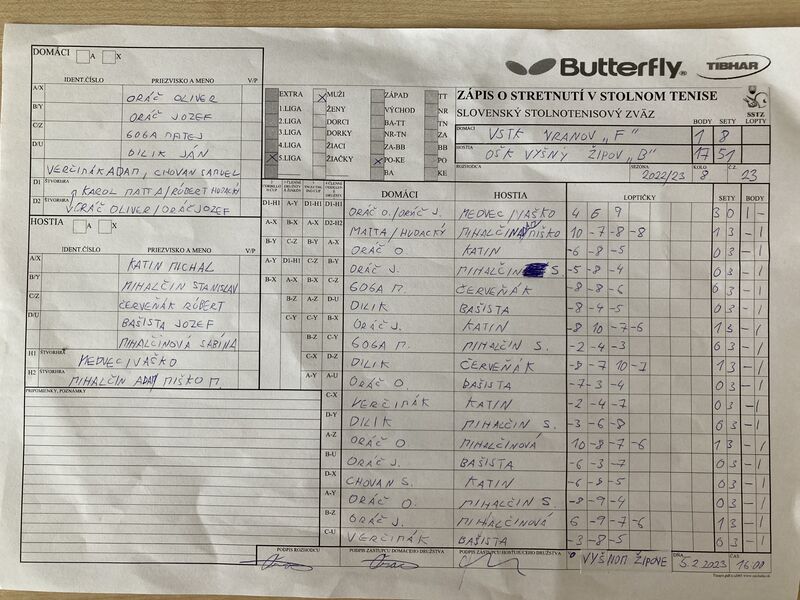 DOMÁCI A X
Butterfly TIBHAR
IDENT.ČÍSLO PRIEZVISKO A MENO V/P
A/X ORÁČ OLIVER
B/Y ORÁČ JOZEF
C/Z GOGA MATEJ
D/U DILIK JÁN
VERČIMÁK ADAM, CHOVAN SAMUEL
D1 ŠTVORHRA KAROL MATTA/RÓBERT HUDACKÝ
D2 ŠTVORHRA ORÁČ OLIVER/ORÁČ JOZEF
HOSTIA A X
IDENT.ČÍSLO PRIEZVISKO A MENO V/P
A/X KATIN MICHAL
B/Y MIHALČIN STANISLAV
C/Z ČERVEŇÁK RÓBERT
D/U BAŠISTA JOZEF
MIHALČINOVÁ SABÍNA
H1 ŠTVORHRA MEDVEC/VAŠKO
H2 ŠTVORHRA MIHALČIN ADAM MIŠKO M.
PRIPOMIENKY, POZNÁMKY
EXTRA MUŽI ZÁPAD TT
1.LIGA ŽENY VÝCHOD NR
2.LIGA DORCI BA-TT TN
3.LIGA DORKY NR-TN ZA
4.LIGA ŽIACI ZA-BB BB
5.LIGA ŽIAČKY PO-KE PO
BA KE
ZÁPIS O STRETNUTÍ V STOLNOM TENISE
SLOVENSKÝ STOLNOTENISOVÝ ZVÄZ SSTZ
BODY SETY LOPTY
DOMÁCI VSTK VRANOV „F" 1 8
HOSTIA OŠK VYŠNÝ ŽIPOV „B" 17 51
SEZÓNA 2022/23 KOLO 8 Č.ZÁP. 23
DOMÁCI HOSTIA LOPTIČKY SETY BODY
D1-H1 A-Y D1-H1 D1-H1 ORÁČ O./ORÁČ J. MEDVEC/VAŠKO 4 6 9 3 0 1 -
A-X B-X A-X D2-H2 MATTA/HUDACKÝ MIHALČIN AD/MIŠKO 10 -7 -8 -8 1 3 - 1
B-Y C-Z B-Y A-X ORÁČ O. KATIN -6 -8 -5 0 3 - 1
A-Y D1-H1 C-Z B-Y ORÁČ J. MIHALČIN S. -5 -8 -4 0 3 - 1
B-X A-X A-Y C-Z GOGA M. ČERVEŇÁK -8 -8 -6 0 3 - 1
B-Z A-Z D-U DILIK BAŠISTA -8 -4 -5 0 3 - 1
C-Y B-X ORÁČ J. KATIN -8 10 -7 -6 1 3 - 1
B-Z C-Y GOGA M. MIHALČIN S. -2 -4 -3 0 3 - 1
C-X D-Z DILIK ČERVEŇÁK -8 -7 10 -7 1 3 - 1
A-Y A-U ORÁČ O. BAŠISTA -7 -3 -4 0 3 - 1
C-X VERČIMÁK KATIN -2 -4 -7 0 3 - 1
D-Y DILIK MIHALČIN S. -3 -6 -8 0 3 - 1
A-Z ORÁČ O. MIHALČINOVÁ 10 -8 -7 -6 1 3 - 1
B-U ORÁČ J. BAŠISTA -6 -3 -7 0 3 - 1
D-X CHOVAN S. KATIN -6 -8 -5 0 3 - 1
A-Y ORÁČ O. MIHALČIN S. -8 -9 -4 0 3 - 1
B-Z ORÁČ J. MIHALČINOVÁ 6 -9 -7 -6 1 3 - 1
C-U VERČIMÁK BAŠISTA -3 -8 -5 0 3 - 1
PODPIS ROZHODCU PODPIS ZÁSTUPCU DOMÁCEHO DRUŽSTVA PODPIS ZÁSTUPCU HOSŤUJÚCEHO DRUŽSTVA VYŠNOM ŽIPOVE DŇA 5.2.2023 ČAS 16.00